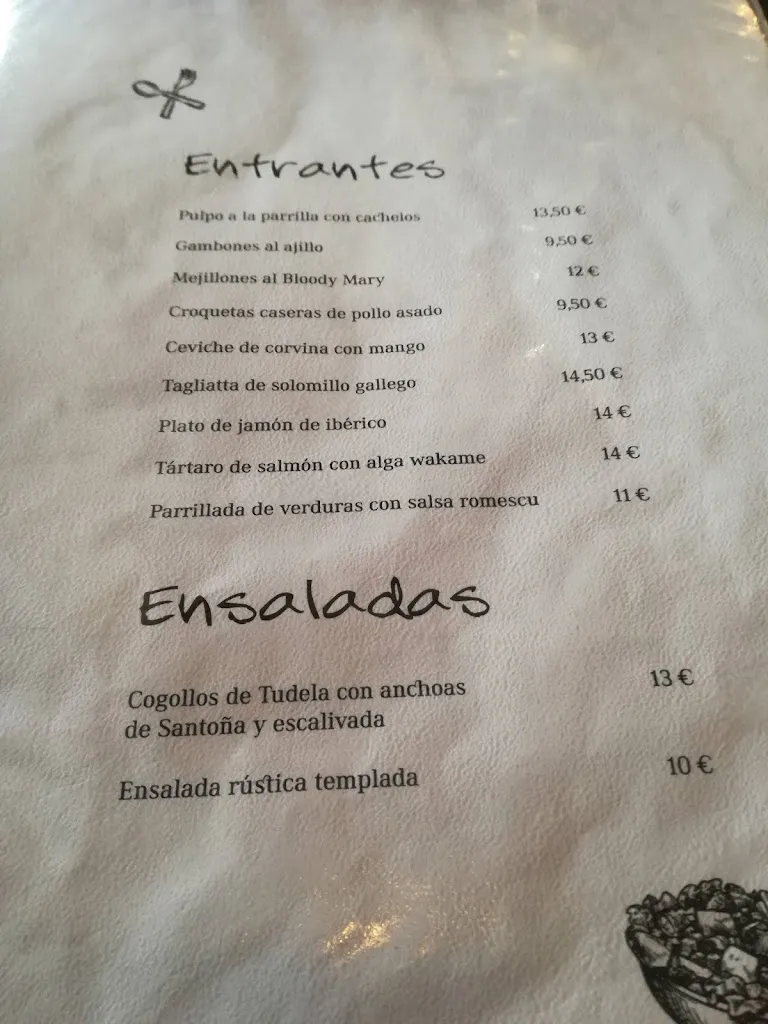 Entrantes
Pulpo a la parrilla con cachelos 13,50 €
Gambones al ajillo 9,50 €
Mejillones al Bloody Mary 12 €
Croquetas caseras de pollo asado 9,50 €
Ceviche de corvina con mango 13 €
Tagliatta de solomillo gallego 14,50 €
Plato de jamón de ibérico 14 €
Tártaro de salmón con alga wakame 14 €
Parrillada de verduras con salsa romescu 11 €
Ensaladas
Cogollos de Tudela con anchoas 13 €
de Santoña y escalivada
Ensalada rústica templada 10 €